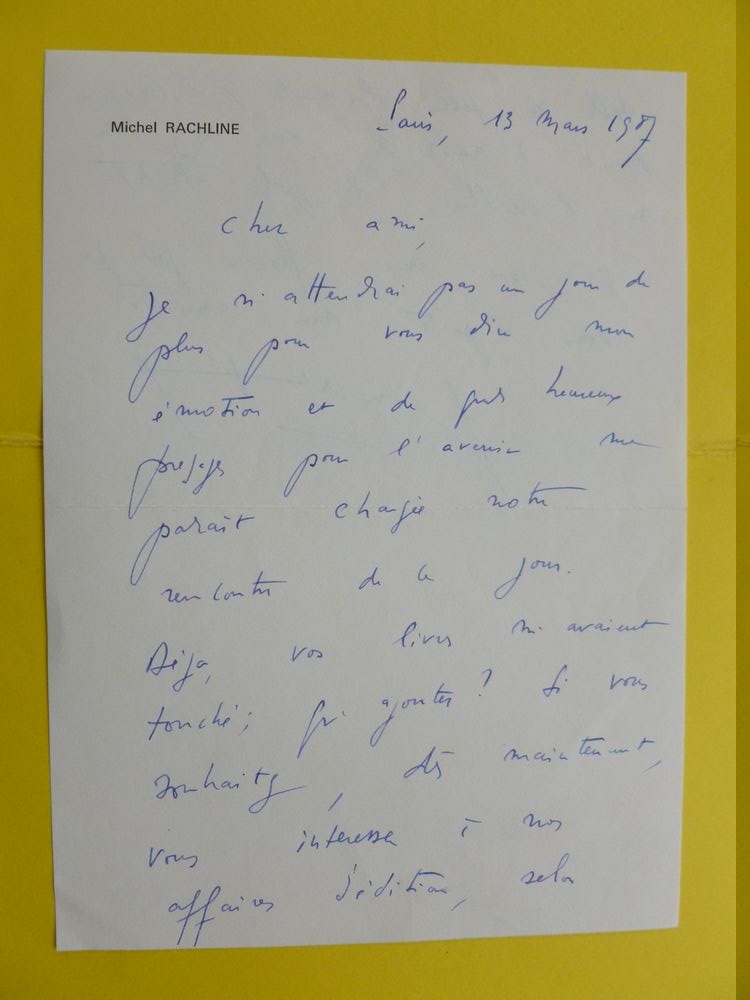 Michel RACHLINE
Paris, 13 mars 1987
Cher ami,
Je n'attendrai pas un jour de
plus pour vous dire mon
émotion et de quels heureux
présages pour l'avenir me
paraît chargée notre
rencontre de ce jour.
Déjà, vos livres m'avaient
touché ; qu'ajouter ? Si vous
souhaitez, dès maintenant,
vous intéresser à nos
affaires d'édition, selon